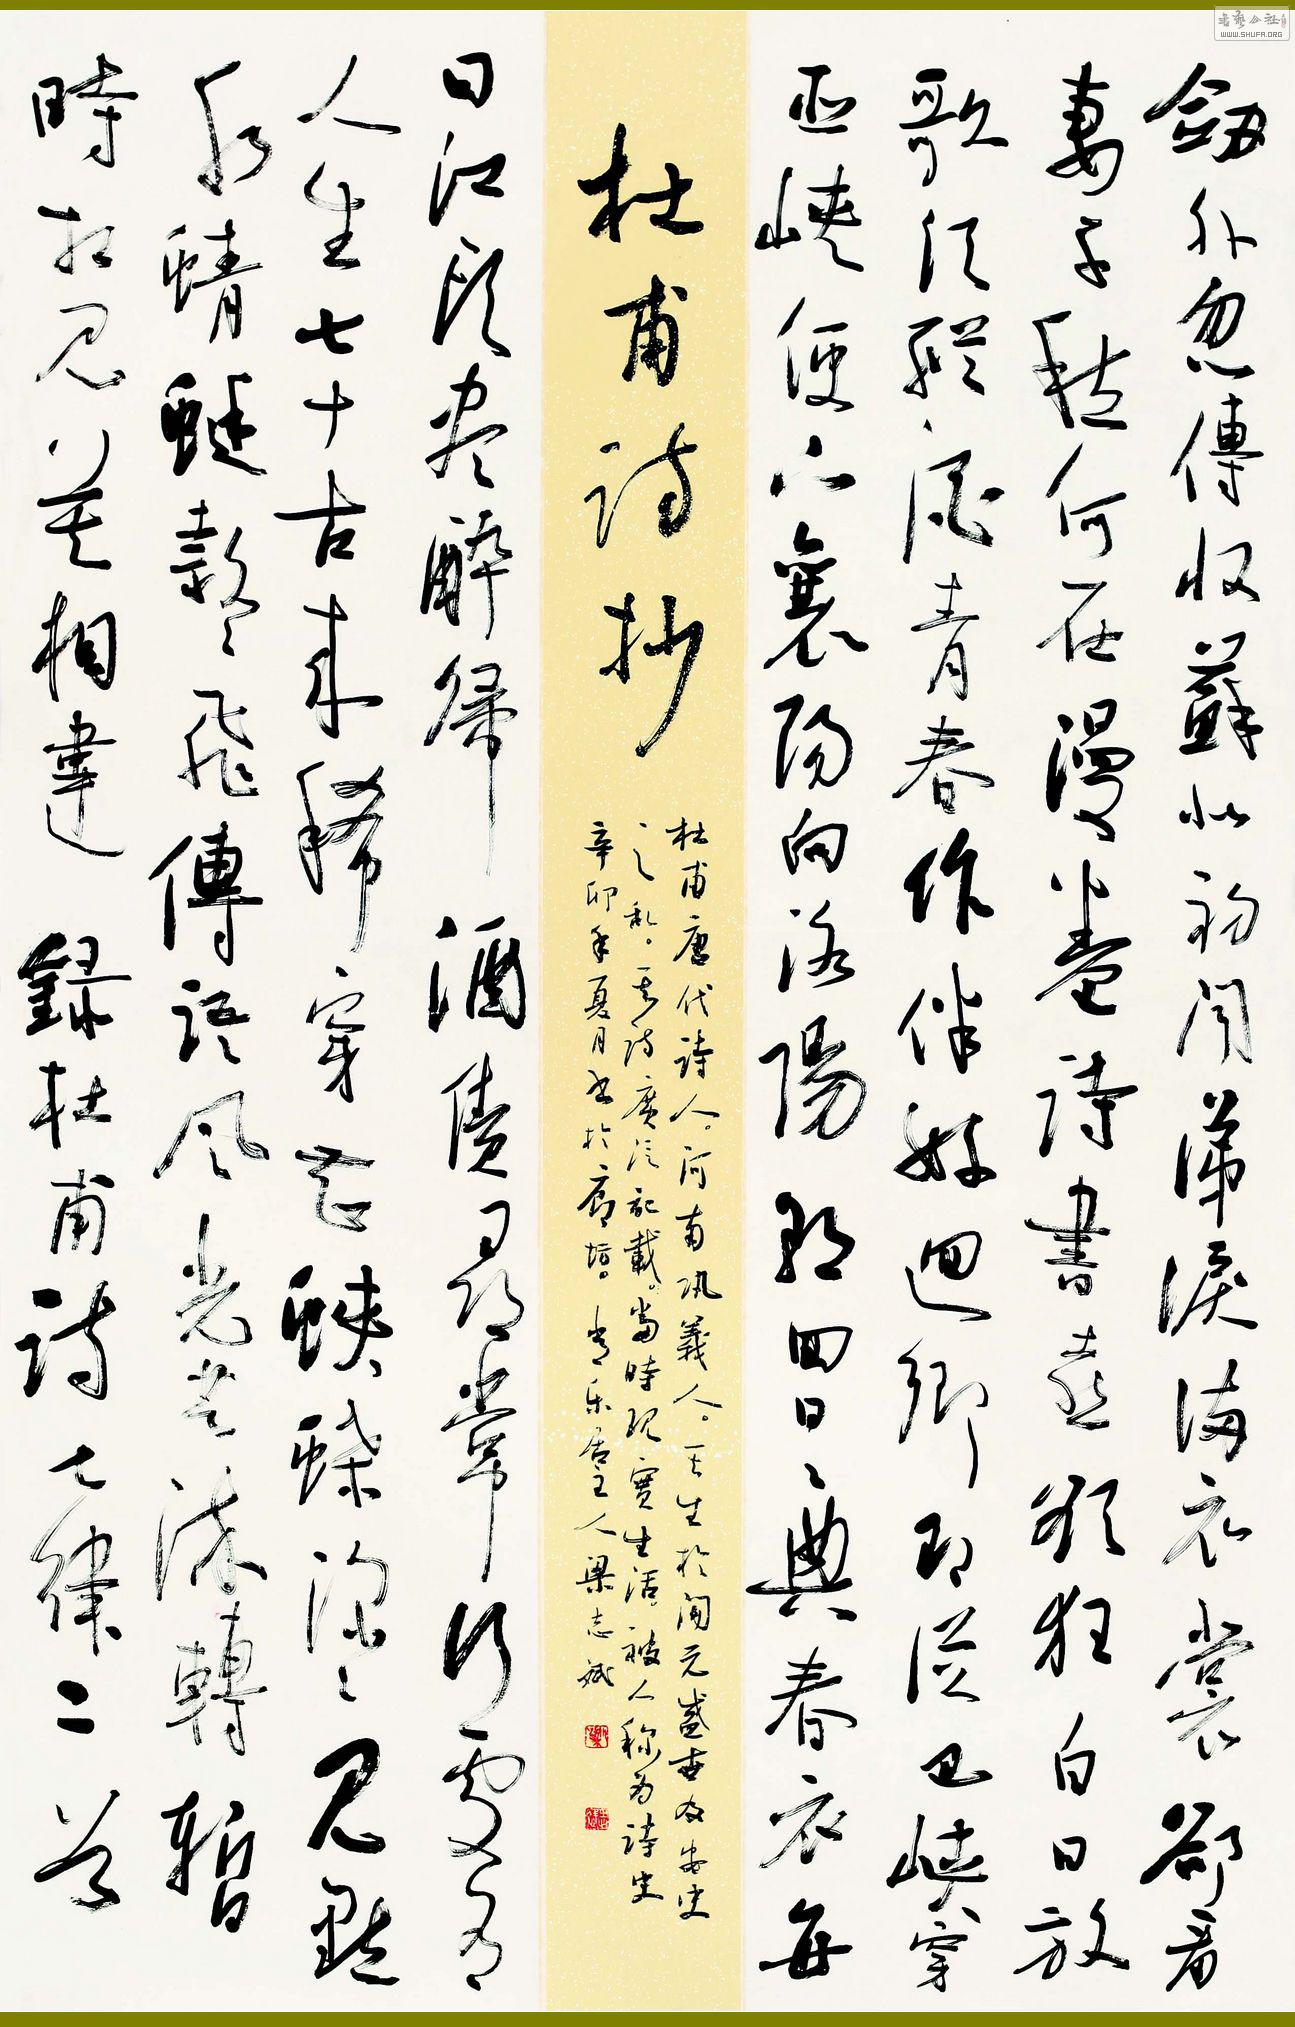 劒外忽傳收薊北初聞涕淚滿衣裳却看
妻子愁何在漫卷詩書喜欲狂白日放
歌須縱酒青春作伴好迴鄉即從巴峽穿
巫峽便下襄陽向洛陽 朝回日日典春衣每
杜甫诗抄
杜甫唐代詩人。河南巩義人。其生於開元盛世及安史
之乱。其诗廣泛記載。當時現實生活。被人稱为詩史
辛卯年夏月书於廊坊。
居主人梁志斌
日江頭盡醉歸 酒債尋常行處有
人生七十古来稀穿花蛺蝶深深見點
水蜻蜓款款飛傳語風光共流轉暫
時相見莫相違 錄杜甫诗七律二首
书艺公社
WWW.SHUFA.ORG